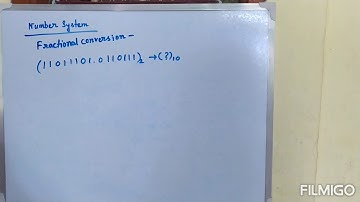 Number System
Fractional conversion -
(11011101.0110111)₂ → (?)₁₀
FILMIGO